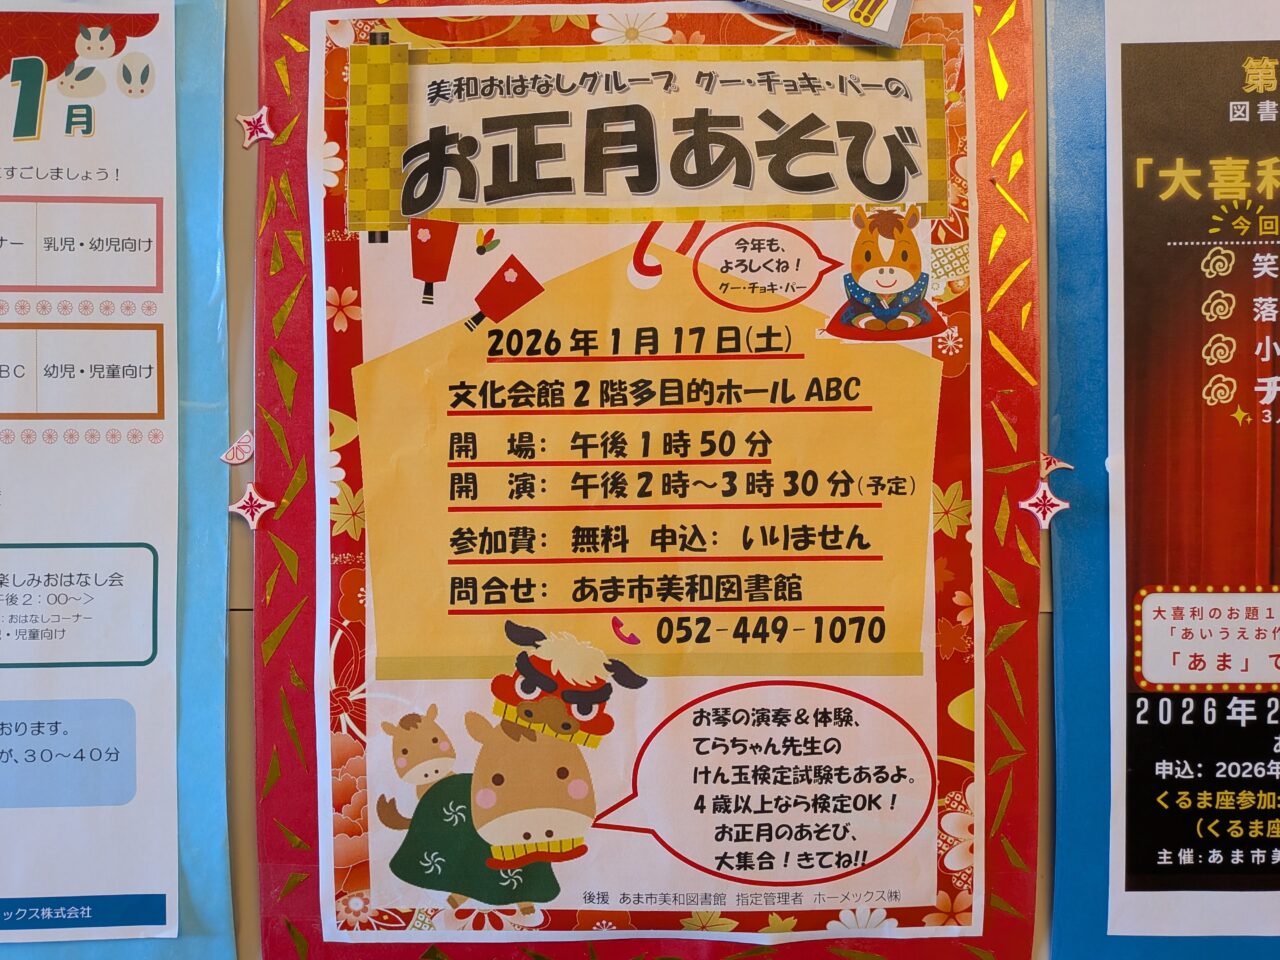 1月
にすごしましょう！
乳児・幼児向け
幼児・児童向け
楽しみおはなし会
午後2：00～＞
：おはなしコーナー
児・児童向け
おります。
が、30～40分
ックス株式会社
美和おはなしグループ グー・チョキ・パーの
お正月あそび
今年も、
よろしくね！
グー・チョキ・パー
2026年1月17日（土）
文化会館2階多目的ホールABC
開　場：　午後1時50分
開　演：　午後2時～3時30分（予定）
参加費：　無料　申込：　いりません
問合せ：　あま市美和図書館
052-449-1070
お琴の演奏＆体験、
てらちゃん先生の
けん玉検定試験もあるよ。
4歳以上なら検定OK！
お正月のあそび、
大集合！きてね!!
後援　あま市美和図書館　指定管理者　ホーメックス㈱
第
図書
「大喜利
今回
笑
落
小
チ
大喜利のお題1
「あいうえお作
「あま」で
2026年2
申込：2026年
くるま座参加
（くるま座
主催：あま市美